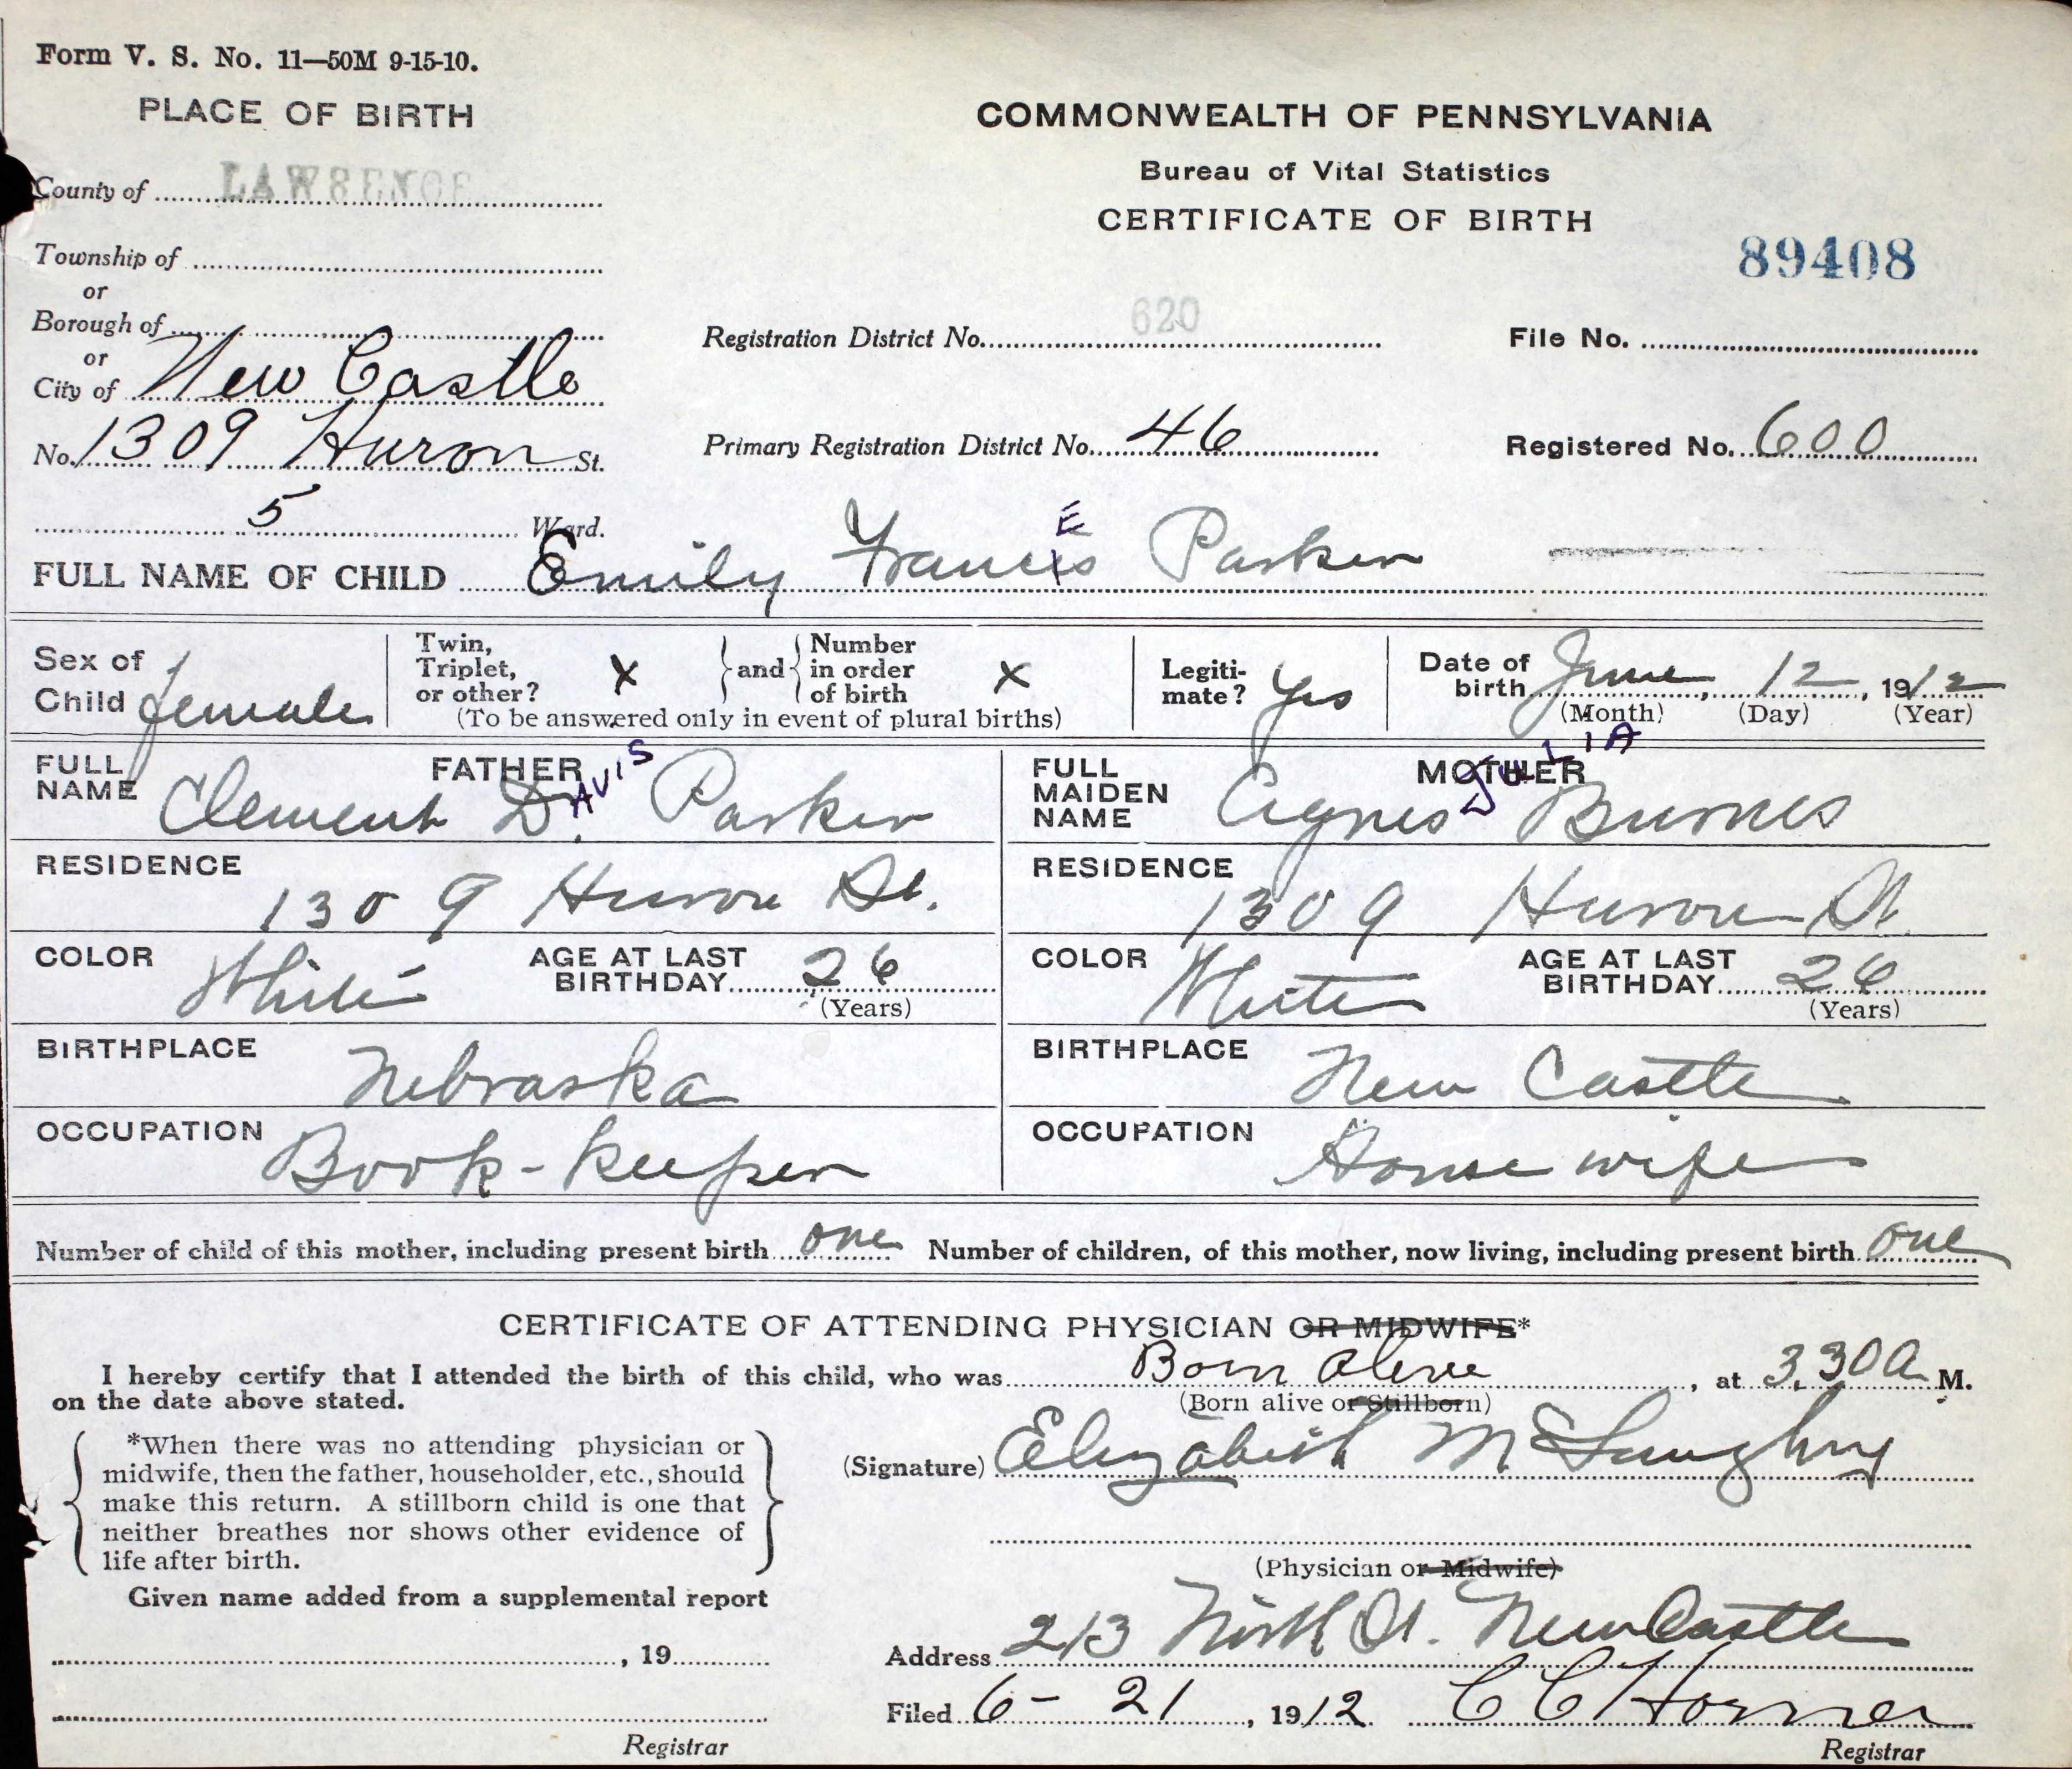 Form V. S. No. 11—50M 9-15-10.
PLACE OF BIRTH
COMMONWEALTH OF PENNSYLVANIA
Bureau of Vital Statistics
CERTIFICATE OF BIRTH
89408
County of LAWRENCE
Township of
or
Borough of
or
City of New Castle
No. 1309 Huron St.
5 Ward.
Registration District No. 620
File No.
Primary Registration District No. 46
Registered No. 600
E
FULL NAME OF CHILD Emily Francis Parker
Sex of Child female
Twin, Triplet, or other? X and Number in order of birth X
(To be answered only in event of plural births)
Legitimate? Yes
Date of birth June, 12, 1912
(Month) (Day) (Year)
FATHER
FULL NAME Clement D.AVIS Parker
RESIDENCE 1309 Huron St.
COLOR White
AGE AT LAST BIRTHDAY 26
(Years)
BIRTHPLACE Nebraska
OCCUPATION Book-keeper
MOTHER
FULL MAIDEN NAME Agnes JULIA Burnes
RESIDENCE 1309 Huron St.
COLOR White
AGE AT LAST BIRTHDAY 26
(Years)
BIRTHPLACE New Castle
OCCUPATION House wife
Number of child of this mother, including present birth one Number of children, of this mother, now living, including present birth one
CERTIFICATE OF ATTENDING PHYSICIAN OR MIDWIFE*
I hereby certify that I attended the birth of this child, who was Born alive, at 3.30 a M.
on the date above stated.
(Born alive or Stillborn)
*When there was no attending physician or
midwife, then the father, householder, etc., should
make this return. A stillborn child is one that
neither breathes nor shows other evidence of
life after birth.
(Signature) Elizabeth McLaughry
(Physician or Midwife)
Given name added from a supplemental report
, 19
Registrar
Address 213 North St. New Castle
Filed 6-21, 1912 C C Horner
Registrar